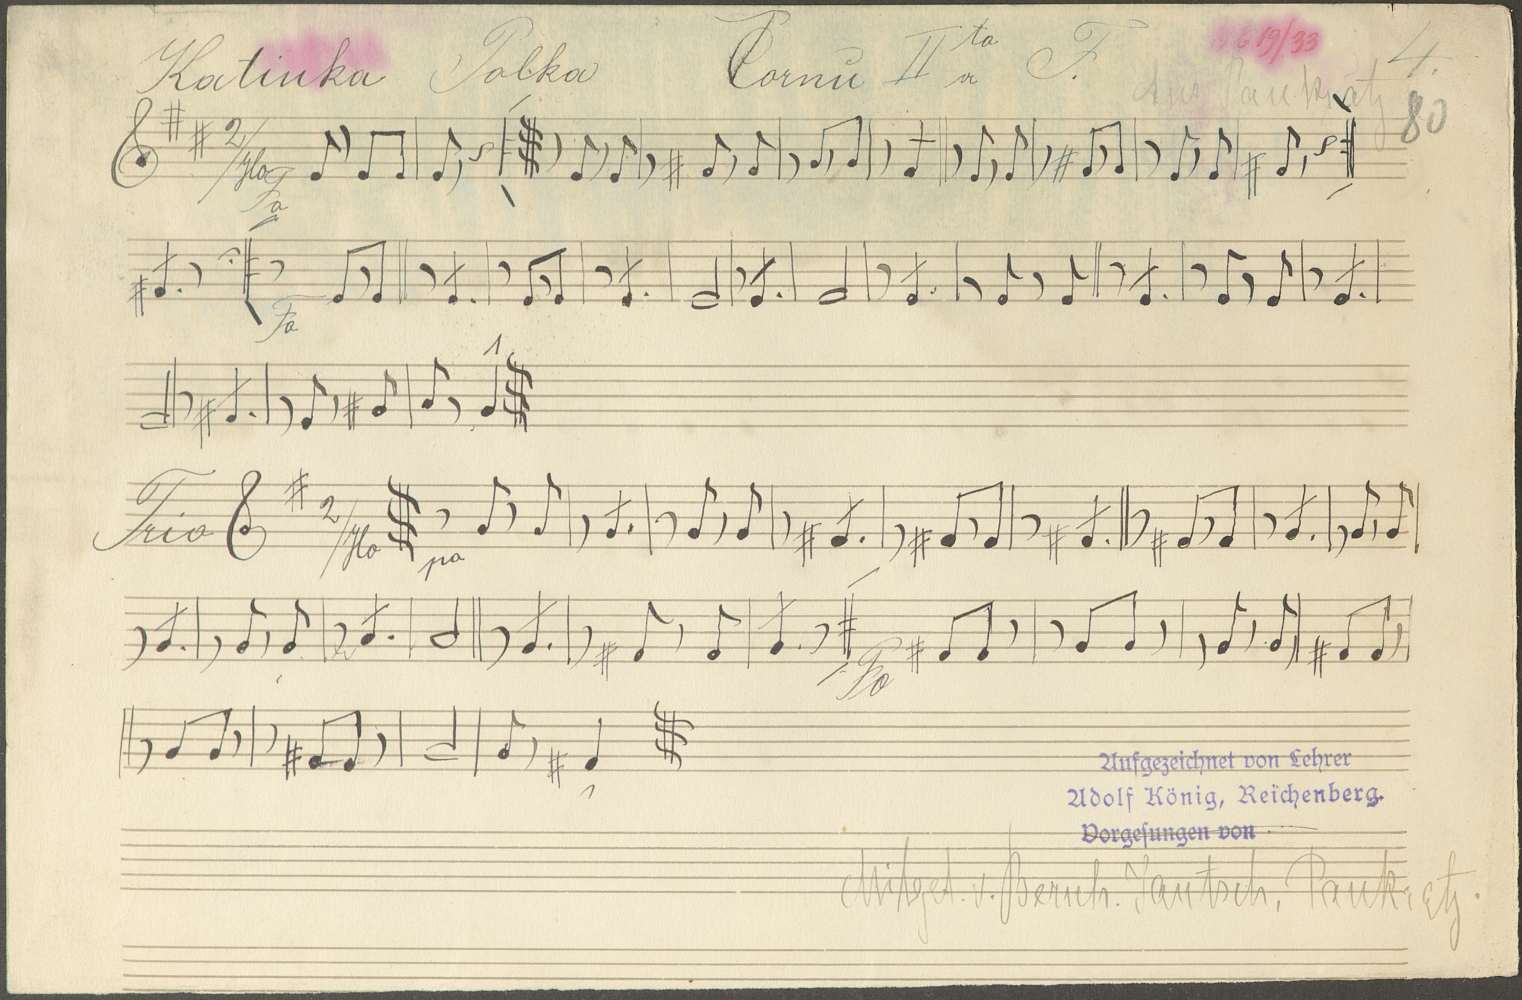 Katinka Polka Cornu II ta a F. 19/33 4.
Aus Pankratz 80
2/4
Fo
Fo
1
Trio 2/4 po
Fo
1
Aufgezeichnet von Lehrer
Adolf König, Reichenberg.
Vorgesungen von
Mitget. v. Bernh. Jautsch, Pankratz.